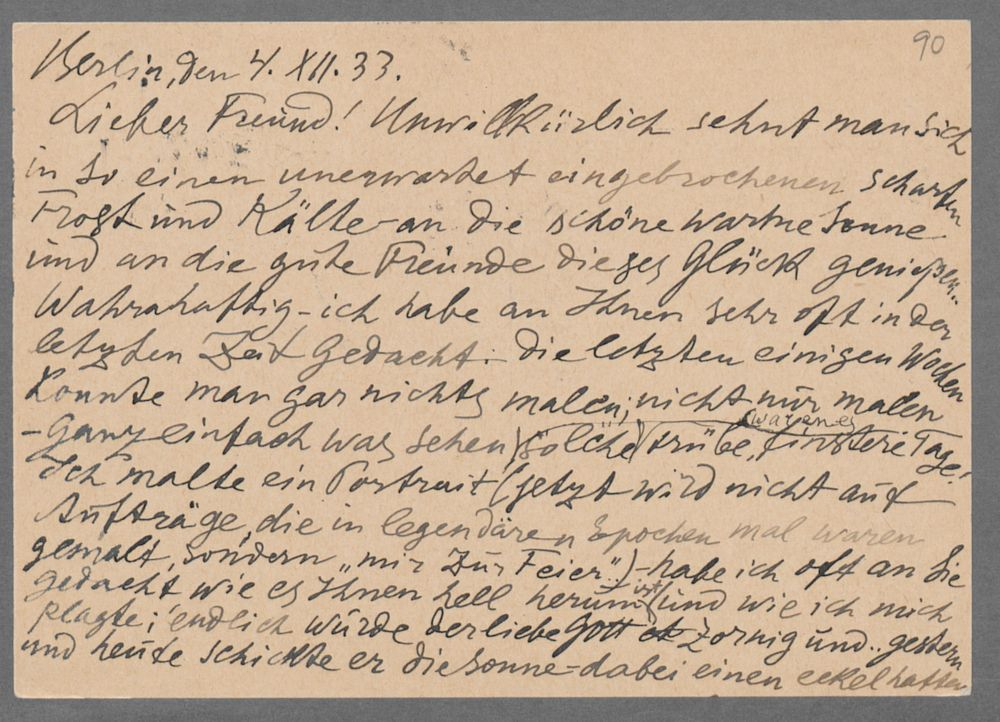 90
Berlin, den 4. XII. 33.
Lieber Freund! Unwillkürlich sehnt man sich
in so einen unerwartet eingebrochenen scharfen
Frost und Kälte - an die schöne warme Sonne
und an die gute Freunde dieses Glück genießen..
Wahrahaftig - ich habe an Ihnen sehr oft in der
letzten Zeit gedacht. - Die letzten einigen Wochen
konnte man gar nichts malen; nicht nur malen
- Ganz einfach was sehen, solche (waren es) trübe, finstere Tage!
Ich malte ein Portrait (jetzt wird nicht auf
Aufträge, die in legendären Epochen mal waren
gemalt, sondern „mir zur Feier") - habe ich oft an Sie
gedacht wie es Ihnen hell herum ist und wie ich mich
plagte; endlich würde der liebe Gott zornig und.. gestern
und heute schickte er die Sonne - dabei einen eckelhaften